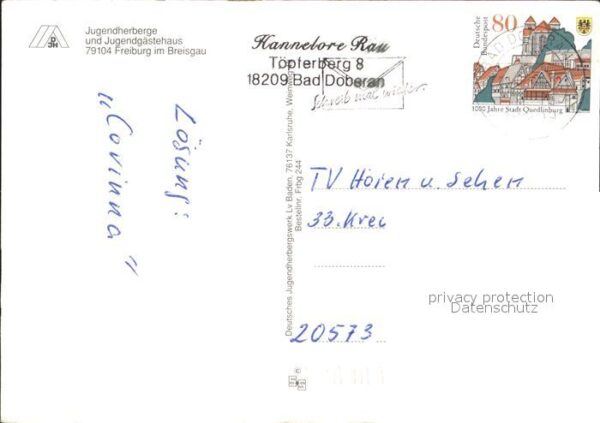 DJH
Jugendherberge
und Jugendgästehaus
79104 Freiburg im Breisgau
Hannelore Rau
Töpferberg 8
18209 Bad Doberan
Schreib mal wieder
Deutsche
Bundespost
80
1000 Jahre Stadt Quedlinburg
Lösung:
"Corinna"
Deutsches Jugendherbergswerk Lv Baden, 76137 Karlsruhe,
Bestellnr. Frbg 244
TV Hören u. Sehen
33. Krei
20573
privacy protection
Datenschutz